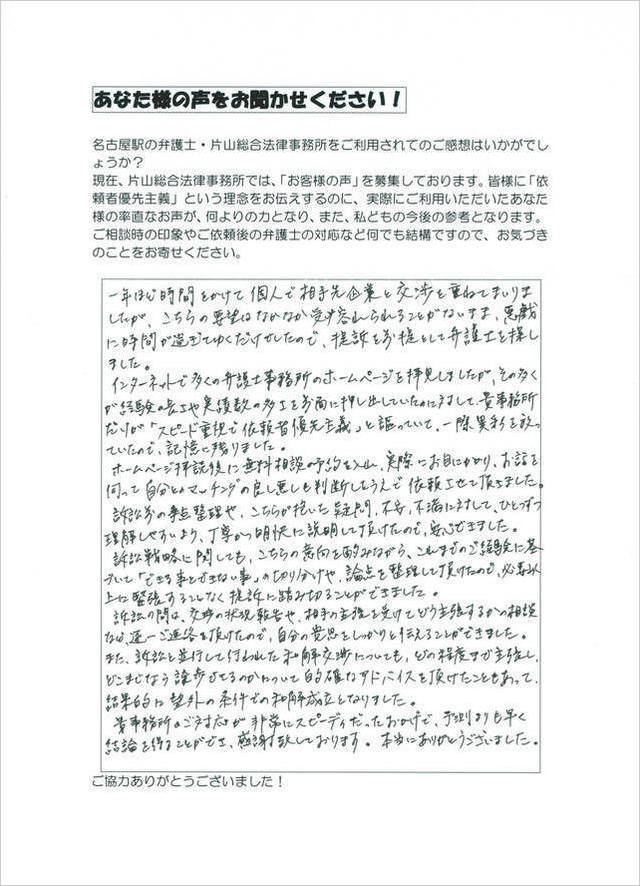 あなた様の声をお聞かせください！
名古屋駅の弁護士・片山総合法律事務所をご利用されてのご感想はいかがでし
ょうか？
現在、片山総合法律事務所では、「お客様の声」を募集しております。皆様に「依
頼者優先主義」という理念をお伝えするのに、実際にご利用いただいたあなた
様の率直なお声が、何よりの力となり、また、私どもの今後の参考となります。
ご相談時の印象やご依頼後の弁護士の対応など何でも結構ですので、お気づき
のことをお寄せください。
一年ほど時間をかけて個人で相手先企業と交渉を重ねてまいりま
したが、こちらの要望はなかなか受け容れられることがないまま、悪戯
に時間が過ぎてゆくだけでしたので、提訴を前提として弁護士を探し
ました。
インターネットで多くの弁護士事務所のホームページを拝見しましたが、その多く
が経験の長さや実績数の多さを前面に押し出していたのに対して、貴事務所
だけが「スピード重視で依頼者優先主義」と謳っていて、一際異彩を放っ
ていたので、記憶に残りました。
ホームページ拝読後に無料相談の予約を入れ、実際にお目にかかり、お話を
伺って自分とのマッチングの良し悪しも判断したうえで依頼させて頂きました。
訴訟前の争点整理や、こちらが抱いた疑問、不安、不満に対して、ひとつずつ
理解しやすいよう、丁寧かつ明快に説明して頂けたので、安心できました。
訴訟戦略に関しても、こちらの意向を酌みながら、これまでのご経験に基
づいて「できる事とできない事」の切り分けや、論点を整理して頂けたので、必要以
上に緊張することなく提訴に踏み切ることができました。
訴訟の間は、交渉の状況報告や、相手の主張を受けてどう主張するかの相談
など、逐一ご連絡を頂けたので、自分の意思をしっかりと伝えることができました。
また、訴訟と並行して行われた和解交渉についても、どの程度まで主張し、
どこまでなら譲歩できるかについて的確なアドバイスを頂けたこともあって、
結果的に望外の条件での和解成立となりました。
貴事務所のご対応が非常にスピーディだったおかげで、予測よりも早く
結論を得ることができ、感謝致しております。本当にありがとうございました。
ご協力ありがとうございました！